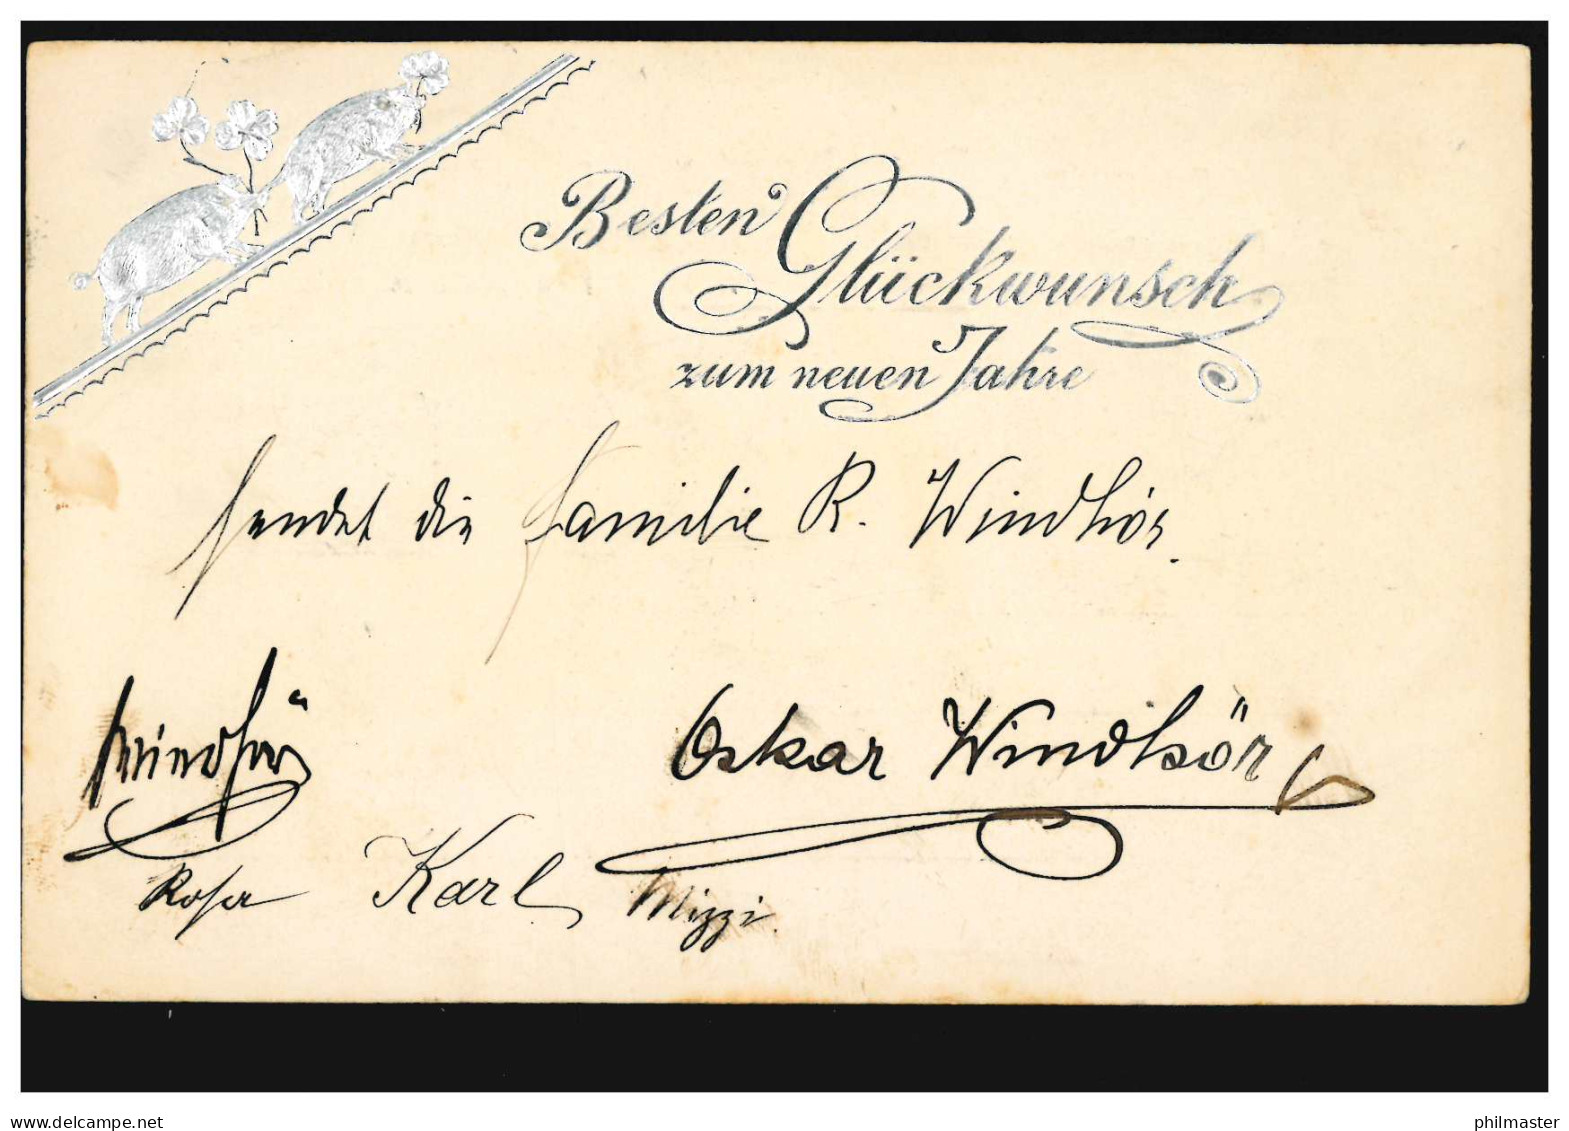 Besten Glückwunsch
zum neuen Jahre
sendet die Familie R. Windhör.
Windhör
Oskar Windhör
Rosa Karl Mizzi.
www.delcampe.net
philmaster